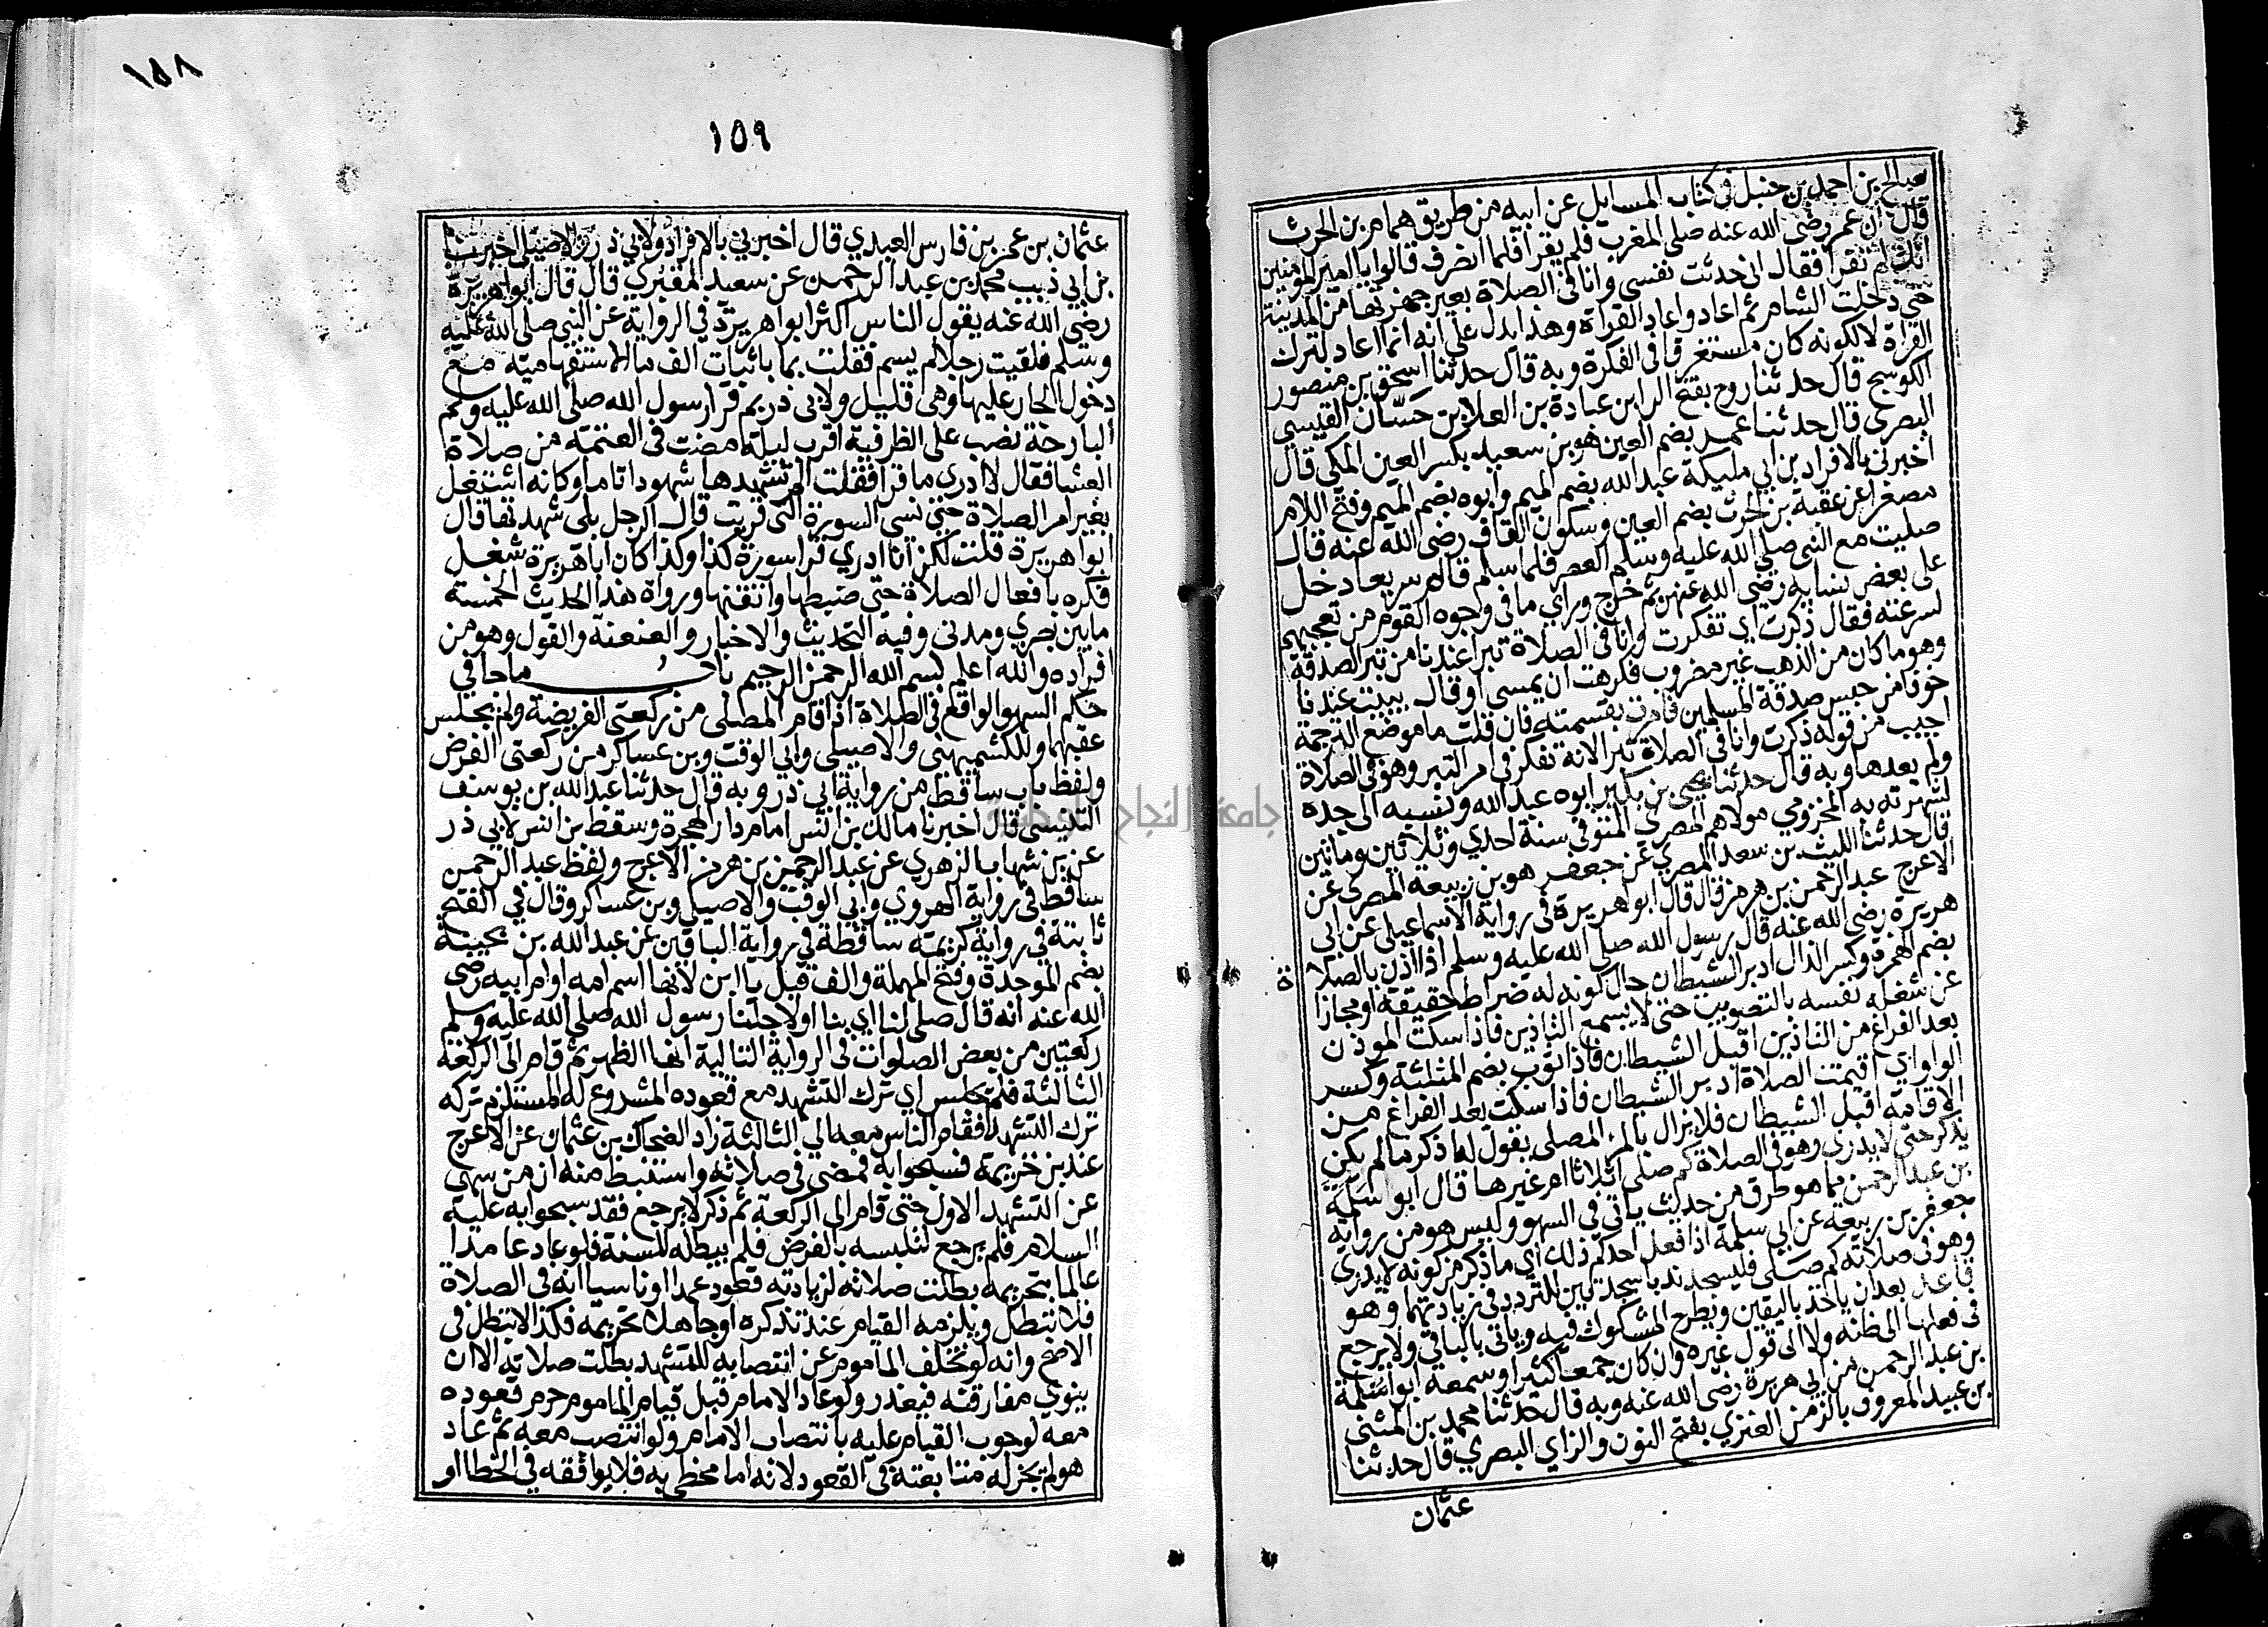 صالح بن احمد بن حنبل في كتاب المسايل عن ابيه من طريق همام بن الحرث
قال ان عمر رضي الله عنه صلى المغرب فلم يقرا فلما انصرف قالوا يا امير المومنين
انك لم تقرا فقال اني حدثت نفسي وانا في الصلاة بعير جهزتها من المدينة
حتى دخلت الشام ثم اعاد واعاد القراة وهذا يدل على انه انما اعاد لترك
القراة لا لكونه كان مستغرقا في الفكرة وبه قال حدثنا اسحق بن منصور
الكوسج قال حدثنا روح بفتح الرا بن عبادة بن العلا بن حسان القيسي
البصري قال حدثنا عمر بضم العين هو بن سعيد بكسر العين المكي قال
اخبرني بالافراد بن ابي مليكة عبد الله بضم الميم وابوه بضم الميم وفتح اللام
مصغرا عن عقبة بن الحرث بضم العين وسكون القاف رضي الله عنه قال
صليت مع النبي صلى الله عليه وسلم العصر فلما سلم قام سريعا دخل
على بعض نسايه رضي الله عنهن ثم خرج وراي ما في وجوه القوم من تعجبهم
لسرعته فقال ذكرت اي تفكرت وانا في الصلاة تبرا عندنا من تبر الصدقة
وهو ما كان من الذهب غير مضروب فكرهت ان يمسي او قال يبيت عندنا
خوفا من حبس صدقة المسلمين فامرت بقسمته فان قلت ما موضع الترجمة
اجيب من قوله ذكرت وانا في الصلاة تبرا لانه تفكر في امر التبر وهو في الصلاة
ولم يعدها وبه قال حدثنا يحيى بن بكير ابوه عبد الله ونسبه الى جده
لشهرته به المخزومي مولاهم المصري المتوفى سنة احدي وثلاثين وماتين
قال حدثنا الليث بن سعد المصري عن جعفر هو بن ربيعة المصري عن
الاعرج عبد الرحمن بن هرمز قال قال ابو هريرة في رواية الاسماعيلي عن ابي
هريرة رضي الله عنه قال رسول الله صلى الله عليه وسلم اذا اذن بالصلاة
بضم الهمزة وكسر الذال ادبر الشيطان حال كونه له ضراط حقيقة او مجازا
عن شغله نفسه بالتصويت حتى لا يسمع التاذين فاذا سكت الموذن
بعد الفراغ من التاذين اقبل الشيطان فاذا ثوب بضم المثلثة وكسر
الواو اي اقيمت الصلاة ادبر الشيطان فاذا سكت بعد الفراغ من
الاقامة اقبل الشيطان فلا يزال بالمرء المصلي يقول له اذكر ما لم يكن
يذكر حتى لا يدري وهو في الصلاة كم صلى اثلاثا ام غيرها قال ابو سلمة
بن عبد الرحمن مما هو طرق من حديث ياتي في السهو وليس هو من رواية
جعفر بن ربيعة عن ابي سلمة اذا فعل احدكم ذلك اي ما ذكر من كونه لا يدري
وهو في صلاته كم صلى فليسجد ندبا سجدتين للتردد في زيادتهما وهو
قاعد بعد ان ياخذ باليقين ويطرح المشكوك فيه وياتي بالباقي ولا يرجع
في فعلها الى ظنه ولا الى قول غيره وان كان جمعا كثيرا وسمعه ابو سلمة
بن عبد الرحمن من ابي هريرة رضي الله عنه وبه قال حدثنا محمد بن المثنى
بن عبيد المعروف بالزمن العنزي بفتح النون والزاي البصري قال حدثنا
عثمان
١٥٨
١٥٩
عثمان بن عمر بن فارس العبدي قال اخبرني بالافراد ولابي ذر والاصيلي اخبرنا
بن ابي ذيب محمد بن عبد الرحمن عن سعيد المقبري قال قال ابو هريرة
رضي الله عنه يقول الناس اكثر ابو هريرة في الرواية عن النبي صلى الله عليه
وسلم فلقيت رجلا لم يسم فقلت بما باثبات الف ما الاستفهامية مع
دخول الجار عليها وهي قليل ولابي ذر بم قرا رسول الله صلى الله عليه وسلم
البارحة نصب على الظرفية اقرب ليلة مضت في العتمة من صلاة
العشا فقال لا ادري ما قرا فقلت الم تشهدها شهودا تاما وكانه اشتغل
بغير امر الصلاة حتى نسي السورة التي قريت قال الرجل بلى شهدتها قال
ابو هريرة قلت لكن انا ادري قرا سورة كذا وكذا كان ابا هريرة شغل
فكره بافعال الصلاة حتى ضبطها واتقنها ورواة هذا الحديث الخمسة
ما بين بصري ومدني وفيه التحديث والاخبار والعنعنة والقول وهو من
افراده والله اعلم بسم الله الرحمن الرحيم باب ما جا في
حكم السهو الواقع في الصلاة اذا قام المصلي من ركعتي الفريضة ولم يجلس
عقبهما وللكشميهني والاصيلي وابي الوقت وبن عساكر من ركعتي الفرض
ولفظ باب ساقط من رواية ابي ذر وبه قال حدثنا عبد الله بن يوسف
التنيسي قال اخبرنا مالك بن انس امام دار الهجرة وسقط بن انس لابي ذر
عن بن شهاب الزهري عن عبد الرحمن بن هرمز الاعرج ولفظ عبد الرحمن
ساقط في رواية الهروي وابي الوقت والاصيلي وبن عساكر وقال في الفتح
ثابتة في رواية كريمة ساقطة في رواية الباقين عن عبد الله بن بحينة
بضم الموحدة وفتح المهملة والف قبل با ابن لانها اسم امه او ام ابيه رضي
الله عنه انه قال صلى لنا اي بنا او لاجلنا رسول الله صلى الله عليه وسلم
ركعتين من بعض الصلوات في الرواية التالية انها الظهر ثم قام الى الركعة
الثالثة فلم يجلس اي ترك التشهد مع قعوده المشروع له المستلزم تركه
ترك التشهد فقام الناس معه الى الثالثة زاد الضحاك بن عثمان عن الاعرج
عند بن خزيمة فسبحوا به فمضى في صلاته واستنبط منه ان من سهى
عن التشهد الاول حتى قام الى الركعة ثم ذكر لا يرجع فقد سبحوا به عليه
السلام فلم يرجع لتلبسه بالفرض فلم يبطله للسنة فلو عاد عامدا
عالما بتحريمه بطلت صلاته لزيادته قعود عمدا او ناسيا انه في الصلاة
فلا تبطل ويلزمه القيام عند تذكره او جاهلا تحريمه فكذا لا تبطل في
الاصح وانه لو تخلف الماموم عن انتصابه للتشهد بطلت صلاته الا ان
ينوي مفارقته فيعذر ولو عاد الامام قبل قيام الماموم حرم قعوده
معه لوجوب القيام عليه بانتصاب الامام ولو انتصب معه ثم عاد
هو لم تجز له متابعته في القعود لانه اما مخطي به فلا يوافقه في الخطا او
جامعة النجاح الوطنية